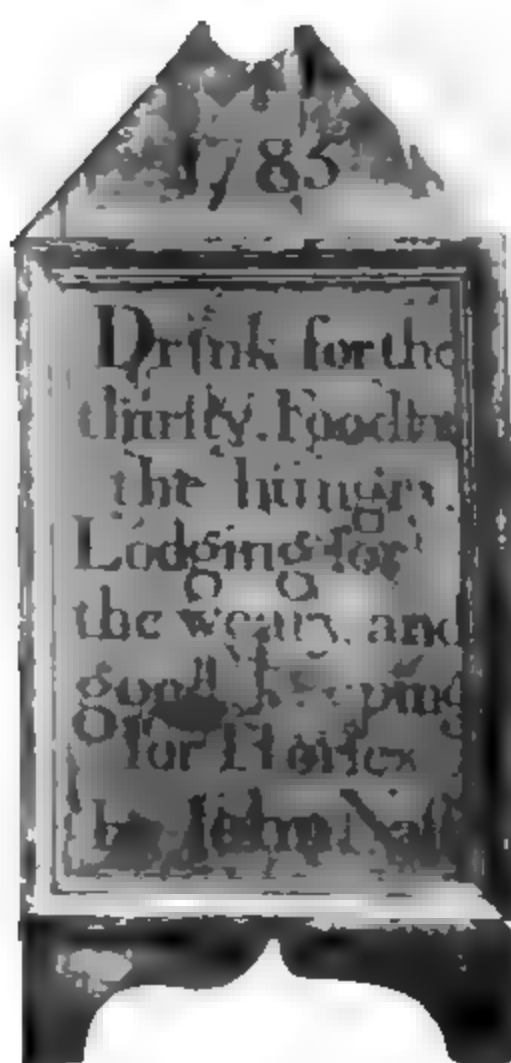 1785
Drink for the
thirſty. Food for
the hungry.
Lodging for
the weary, and
good keeping
for Horſes
by John